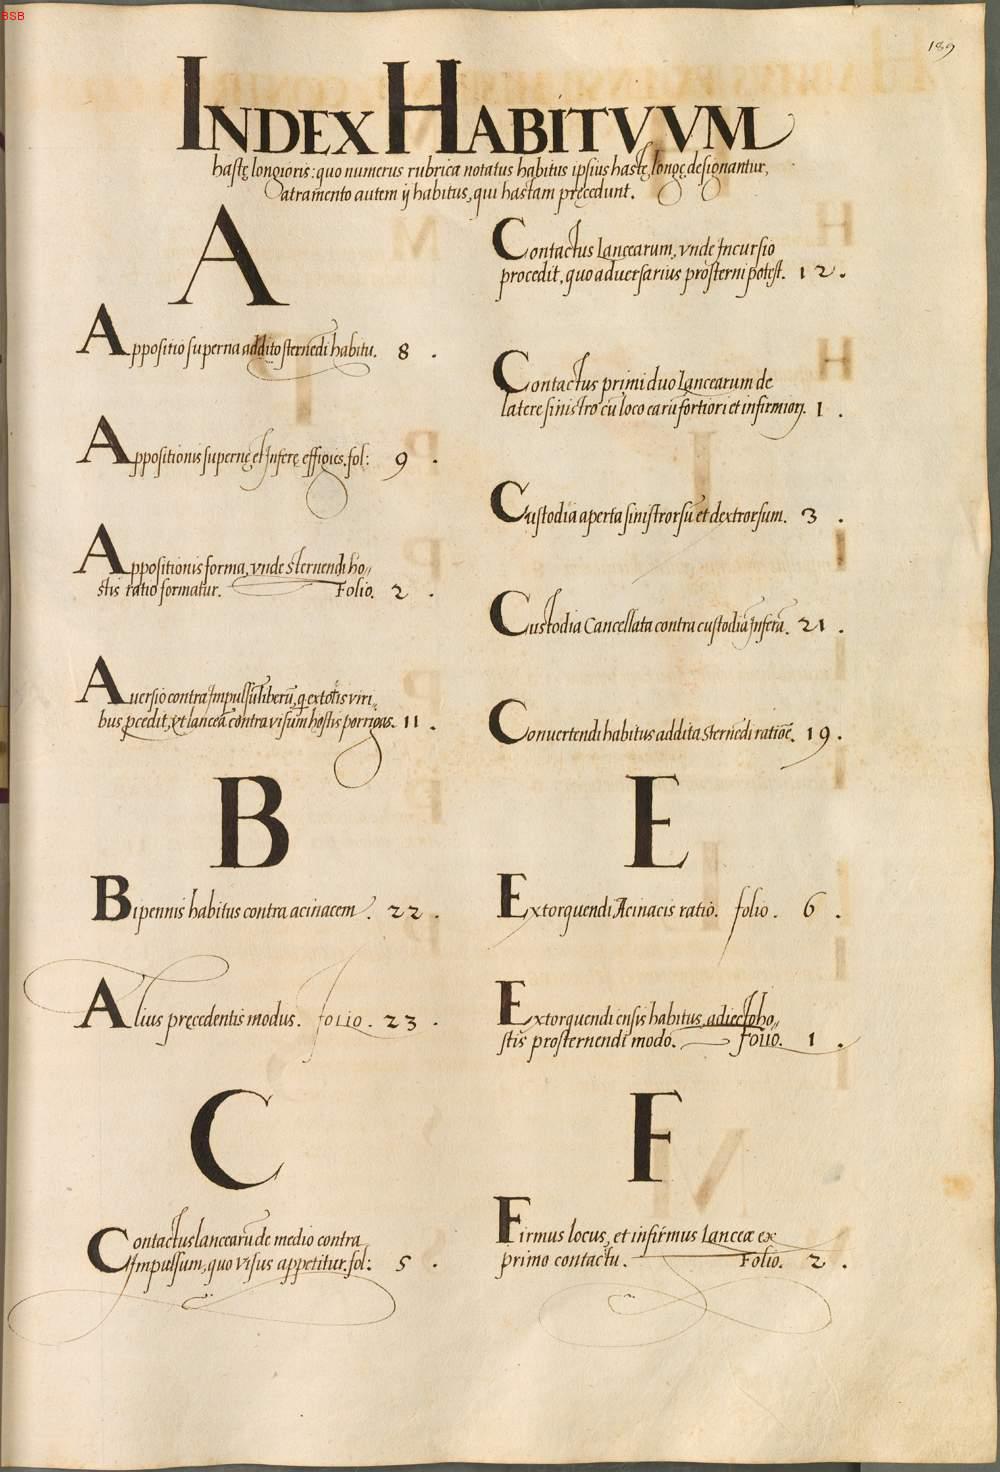 BSB
189
INDEX HABITVVM
hastę longioris: quo numerus rubrica notatus habitus ipsius hastę longę designantur,
atramento autem ij habitus, qui hastam pręcedunt.
A
Appositio superna addito sternēdi habitu. 8 .
Appositionis supernę et Inferę effigies. fol: 9 .
Appositionis forma, vnde sternendi ho„
stis ratio formatur. Folio. 2 .
Auersio contra Impulsū liberū, q extotis viri„
bus pcedit, vt lanceā contra visum hostis porrigas. 11 .
B
Bipennis habitus contra acinacem. 22 .
Alius pręcedentis modus. FOLIO. 23 .
C
Contactus lancearū de medio contra
Impulsum, quo visus appetitur. fol: 5 .
Contactus Lancearum, vnde Incursio
procedit, quo aduersarius prosterni potest. 12 .
Contactus primi duo Lancearum de
latere sinistro cū loco earū fortiori et infirmiori. 1 .
Custodia aperta sinistrorsū et dextrorsum. 3 .
Custodia Cancellata contra custodiā Inferā. 21 .
Conuertendi habitus addita sternēdi ratiōe. 19 .
E
Extorquendi Acinacis ratio. folio. 6 .
Extorquendi ensis habitus, adiecto ho„
stis prosternendi modo. FOLIO. 1 .
F
Firmus locus, et infirmus Lanceæ ex
primo contactu. Folio. 2 .